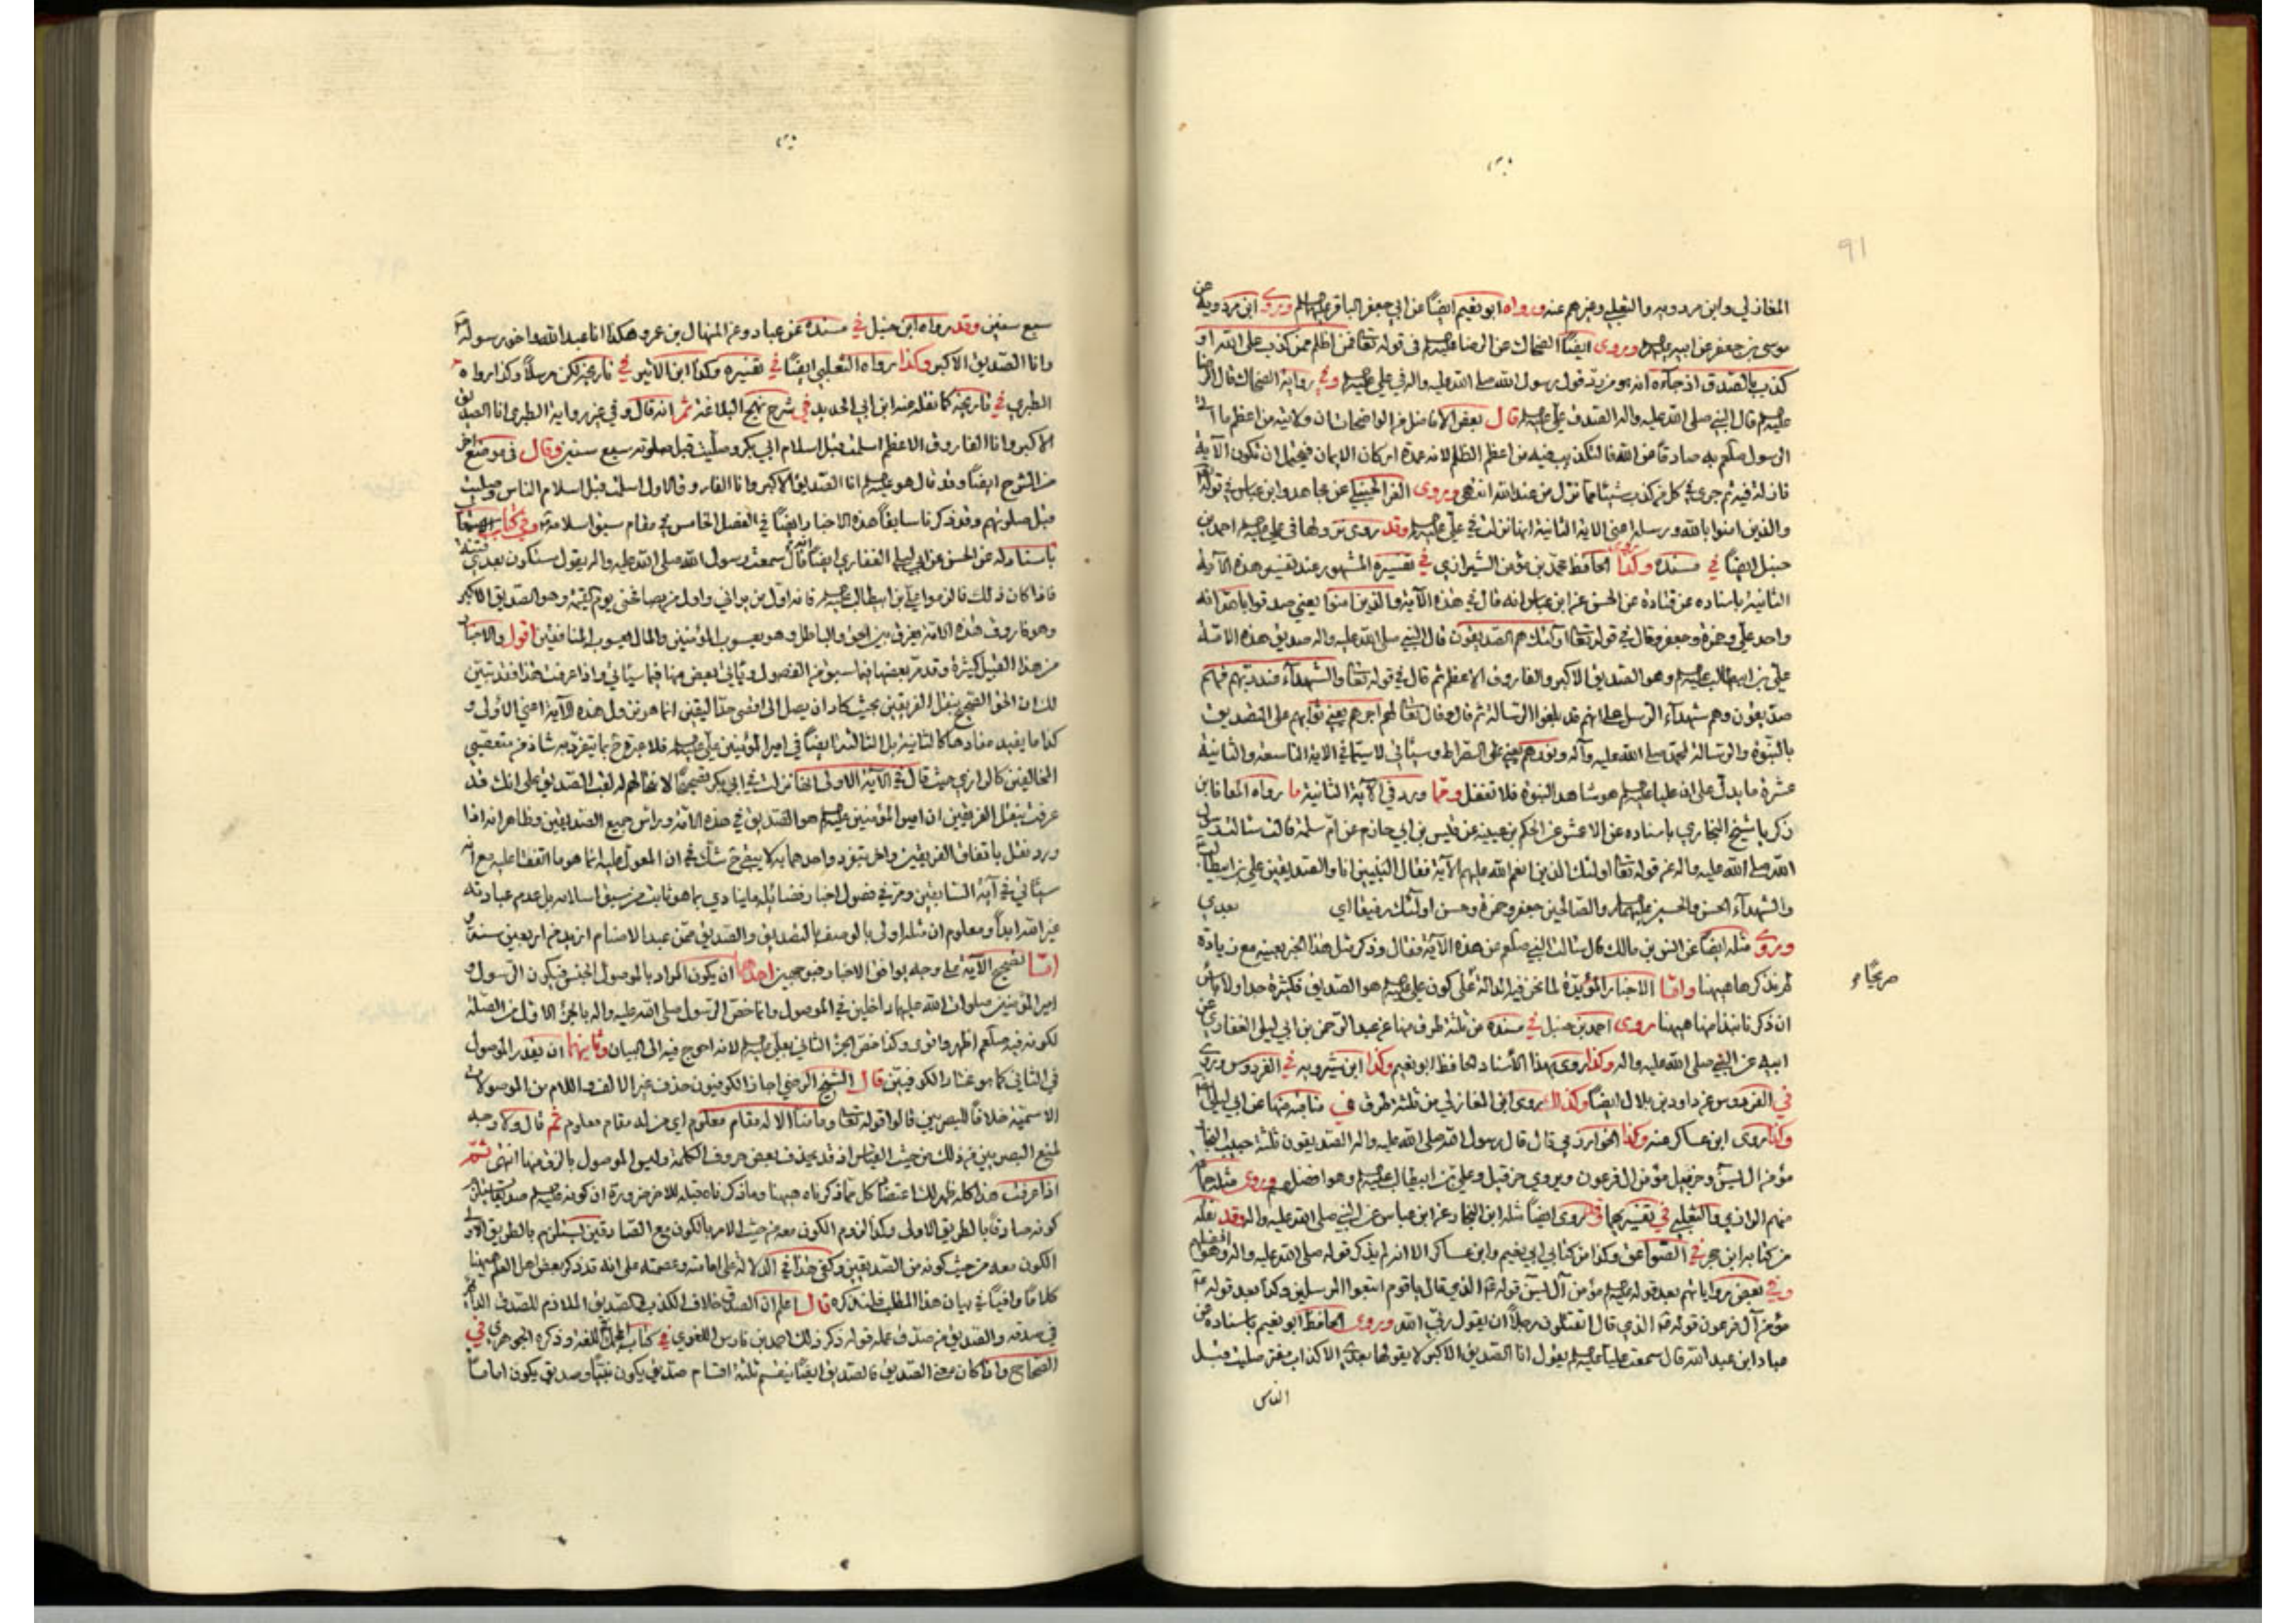 ٩١
المغازلي وابن مردويه والثعلبي وغيرهم عنه ورواه ابو نعيم ايضًا عن ابي جعفر الباقر عليهما السلم وروى ابن مردويه عن
موسى بن جعفر عن ابيه عليه السلم وروى ايضًا الضحاك عن الرضا عليه السلم في قوله تعالى فمن اظلم ممن كذب على الله او
كذب بالصدق اذ جاءه انه هو من رد قول رسول الله صلى الله عليه واله في علي عليه السلم وفي رواية الضحاك قال الرضا
عليه السلم قال النبي صلى الله عليه واله الصدق علي عليه السلم قال بعض الافاضل من الواضحات ان ولايته من اعظم ما اتى
الرسول صلعم به صادقًا من الله فالتكذيب فيه من اعظم الظلم لانه عمدة اركان الايمان فيحتمل ان تكون الآية
نازلة فيه ثم جرى في كل من كذب شيئًا مما نزل من عند الله انتهى وروى الفر الحنبلي عن مجاهد وابن عباس في قوله تعالى
والذين امنوا بالله ورسله اعني الاية الثانية انها نزلت في علي عليه السلم وقد روى نزولها في علي عليه السلم احمد بن
حنبل ايضًا في مسنده وكذا روى الحافظ محمد بن مؤمن الشيرازي في تفسيره المشهور عند تفسير هذه الآية
الثانية باسناده عن قتادة عن الحسن عن ابن عباس انه قال في هذه الآية والذين امنوا يعني صدقوا بالله انه
واحد علي وحمزة وجعفر وقال في قوله تعالى اولئك هم الصديقون قال النبي صلى الله عليه واله صديق هذه الامة
علي بن ابيطالب عليه السلم وهو الصديق الاكبر والفاروق الاعظم ثم قال في قوله تعالى والشهداء عند ربهم فهم
صديقون وهم شهداء الرسل على انهم قد بلغوا الرسالة ثم قال وقال تعالى لهم اجرهم يعني ثوابهم على التصديق
بالنبوة والرسالة لمحمد صلى الله عليه وآله ونورهم يعني على الصراط وسيأتي لا سيما في الاية التاسعة والثانية
عشرة ما يدل على ان عليًا عليه السلم هو شاهد النبوة فلا تغفل ومما ورد في الآية الثانية ما رواه المعافا بن
زكريا شيخ البخاري باسناده عن الاعمش عن الحكم بن عيينة عن قيس بن ابي حازم عن ام سلمة قالت سالت رسول
الله صلى الله عليه واله عن قوله تعالى اولئك الذين انعم الله عليهم الآية فقال النبيين انا والصديقين علي بن ابيطالب
والشهداء الحسن والحسين عليهما السلم والصالحين جعفر وحمزة وحسن اولئك رفيقا اي بعدي
وروى مثله ايضًا عن انس بن مالك قال سالت النبي صلعم عن هذه الآية فقال وذكر مثل هذا الخبر بعينه مع زيادة
لم نذكرها هيهنا واما الاخبار المؤيدة لما نحن فيه الدالة على كون علي عليه السلم هو الصديق فكثيرة جدا ولا باس
صريحًا
ان ذكرنا نبذا منها هيهنا روى احمد بن حنبل في مسنده من ثلثة طرق منها عن عبد الرحمن بن ابي ليلى الغفاري عن
ابيه عن النبي صلى الله عليه واله وكذا روى بهذا الأسناد الحافظ ابو نعيم وكذا ابن شيرويه في الفردوس وروى
في الفردوس عن داود بن بلال ايضًا وكذلك روى ابن المغازلي من ثلثة طرق في مناقبه منها عن ابي ليلى ايضًا
وكذا روى ابن عساكر عنه وكذا الخوارزمي قال قال رسول الله صلى الله عليه واله الصديقون ثلثة حبيب النجار
مؤمن ال ليس وحزبيل مؤمن ال فرعون ويروى حزقيل وعلي بن ابيطالب عليه السلم وهو افضلهم وروى مثله جماعة
منهم الرازي والثعلبي في تفسيريهما وقد روى ايضًا مثله ابن النجار عن ابن عباس عن النبي صلى الله عليه واله وقد نقله
من كتابه ابن حجر في الصواعق وكذا من كتابي ابي نعيم وابن عساكر الا انه لم يذكر قوله صلى الله عليه واله وهو افضلهم
وفي بعض رواياتهم بعد قوله عليه السلم مؤمن آل ليس قوله تعالى الذي قال يا قوم اتبعوا المرسلين وكذا بعد قوله
مؤمن آل فرعون قوله تعالى الذي قال اتقتلون رجلاً ان يقول ربي الله وروى الحافظ ابو نعيم باسناده عن
عباد ابن عبد الله قال سمعت عليًا عليه السلم يقول انا الصديق الاكبر لا يقولها بعدي الا كذاب مفتر صليت قبل
الناس
سبع سنين وقد رواه ابن حنبل في مسنده عن عباد وعن المنهال بن عمرو هكذا انا عبد الله واخو رسوله
وانا الصديق الاكبر وكذا رواه الثعلبي ايضًا في تفسيره وكذا ابن الاثير في تاريخه لكن مرسلاً وكذا رواه
الطبري في تاريخه كما نقله عنه ابن ابي الحديد في شرح نهج البلاغة ثم انه قال وفي غير رواية الطبري انا الصديق
الاكبر وانا الفاروق الاعظم اسلمت قبل اسلام ابي بكر وصليت قبل صلوته سبع سنين وقال في موضع اخر
من الشرح ايضًا وقد قال هو عليه السلم انا الصديق الاكبر وانا الفاروق الاول اسلمت قبل اسلام الناس وصليت
قبل صلوتهم وقد ذكرنا سابقًا هذه الاخبار ايضًا في الفصل الخامس في مقام سبق اسلامه وفي كتاب
باسناد له عن الحسن عن ابي ليلى الغفاري ايضًا انه قال سمعت رسول الله صلى الله عليه واله يقول ستكون بعدي فتنة
فاذا كان ذلك فالزموا علي بن ابيطالب عليه السلم فانه اول من يراني واول من يصافحني يوم القيمة وهو الصديق الاكبر
وهو فاروق هذه الامة يفرق بين الحق والباطل وهو يعسوب المؤمنين والمال يعسوب المنافقين اقول والاخبار
من هذا القبيل كثيرة وقد مر بعضها فيما سبق من الفصول ويأتي بعض منها فيما سيأتي واذا عرفت هذا فقد تبين
لك ان الحق الصحيح بنقل الفريقين بحيث كاد ان يصل الى اقصى حد اليقين انما هو نزول هذه الآية اعني الأولى و
كذا ما يفيد مفادها كالثانية بل الثالثة ايضًا في امير المؤمنين علي عليه السلم فلا عبرة ح بما يتفرد به شاذ من متعصبي
المخالفين كالرازي حيث قال في الآية الاولى انها نزلت في ابي بكر تصحيحًا لانتحالهم له لقب الصديق على انك قد
عرفت بنقل الفريقين ان امير المؤمنين عليه السلم هو الصديق في هذه الامة وراس جميع الصديقين وظاهر انه اذا
ورد نقل باتفاق الفريقين واخر يتفرد واحدهما به لا يبقى ح شك في ان المعول عليه انما هو ما اتفقنا عليه مع انه
سيأتي في آية السابقين ومر في فصول اخبار فضائله ما ينادي بما هو ثابت من سبق اسلامه بل عدم عبادته
غير الله ابدًا ومعلوم ان مثله اولى بالوصف بالتصديق والصديق ممن عبد الاصنام ازيد من اربعين سنة و
امّا تصحيح الآية على وجه يوافق الاخبار فبوجهين احدهما ان يكون المراد بالموصول الجنس فيكون الرسول و
امير المؤمنين صلوات الله عليهما داخلين في الموصول وانما خص الرسول صلى الله عليه واله بالجزء الاول من الصلة
لكونه فيه صلعم اظهر واقوى وكذا خص الجزء الثاني بعلي عليه السلم لانه احوج فيه الى البيان وثانيهما ان يقدر الموصول
في الثاني كما هو مختار الكوفيين قال الشيخ الرضي اجاز الكوفيون حذف غير الالف واللام من الموصولات
الاسمية خلافًا للبصريين قالوا قوله تعالى وما منا الا له مقام معلوم اي من له مقام معلوم ثم قال ولا وجه
لمنع البصريين من ذلك من حيث القياس اذ قد يحذف بعض حروف الكلمة وليس الموصول بالزق منها انتهى ثمّ
اذا عرفت هذا كله ظهر لك اعتضاد كل مما ذكرناه هيهنا وما ذكرناه قبله للاخر ضرورة ان كونه عليه السلم صديقًا يستلزم
كونه صادقًا بالطريق الاولى وكذا لزوم الكون معه من حيث الامر بالكون مع الصادقين يستلزم بالطريق الاولى
الكون معه من حيث كونه من الصديقين وكفى هذا في الدلالة على امامته وعصمته على انه قد ذكر بعض اهل العلم هيهنا
كلامًا وافيًا في بيان هذا المطلب فلنذكره قال اعلم ان الصدق خلاف الكذب والصديق الملازم للصدق الدائم
في صدقه والصديق من صدق عمله قوله ذكر ذلك احمد بن فارس اللغوي في كتاب المجمل للغة وذكره الجوهري في
الصحاح واذا كان معنى الصديق فالصديق ايضًا ينقسم ثلثة اقسام صديق يكون نبيًا وصديق يكون امامًا